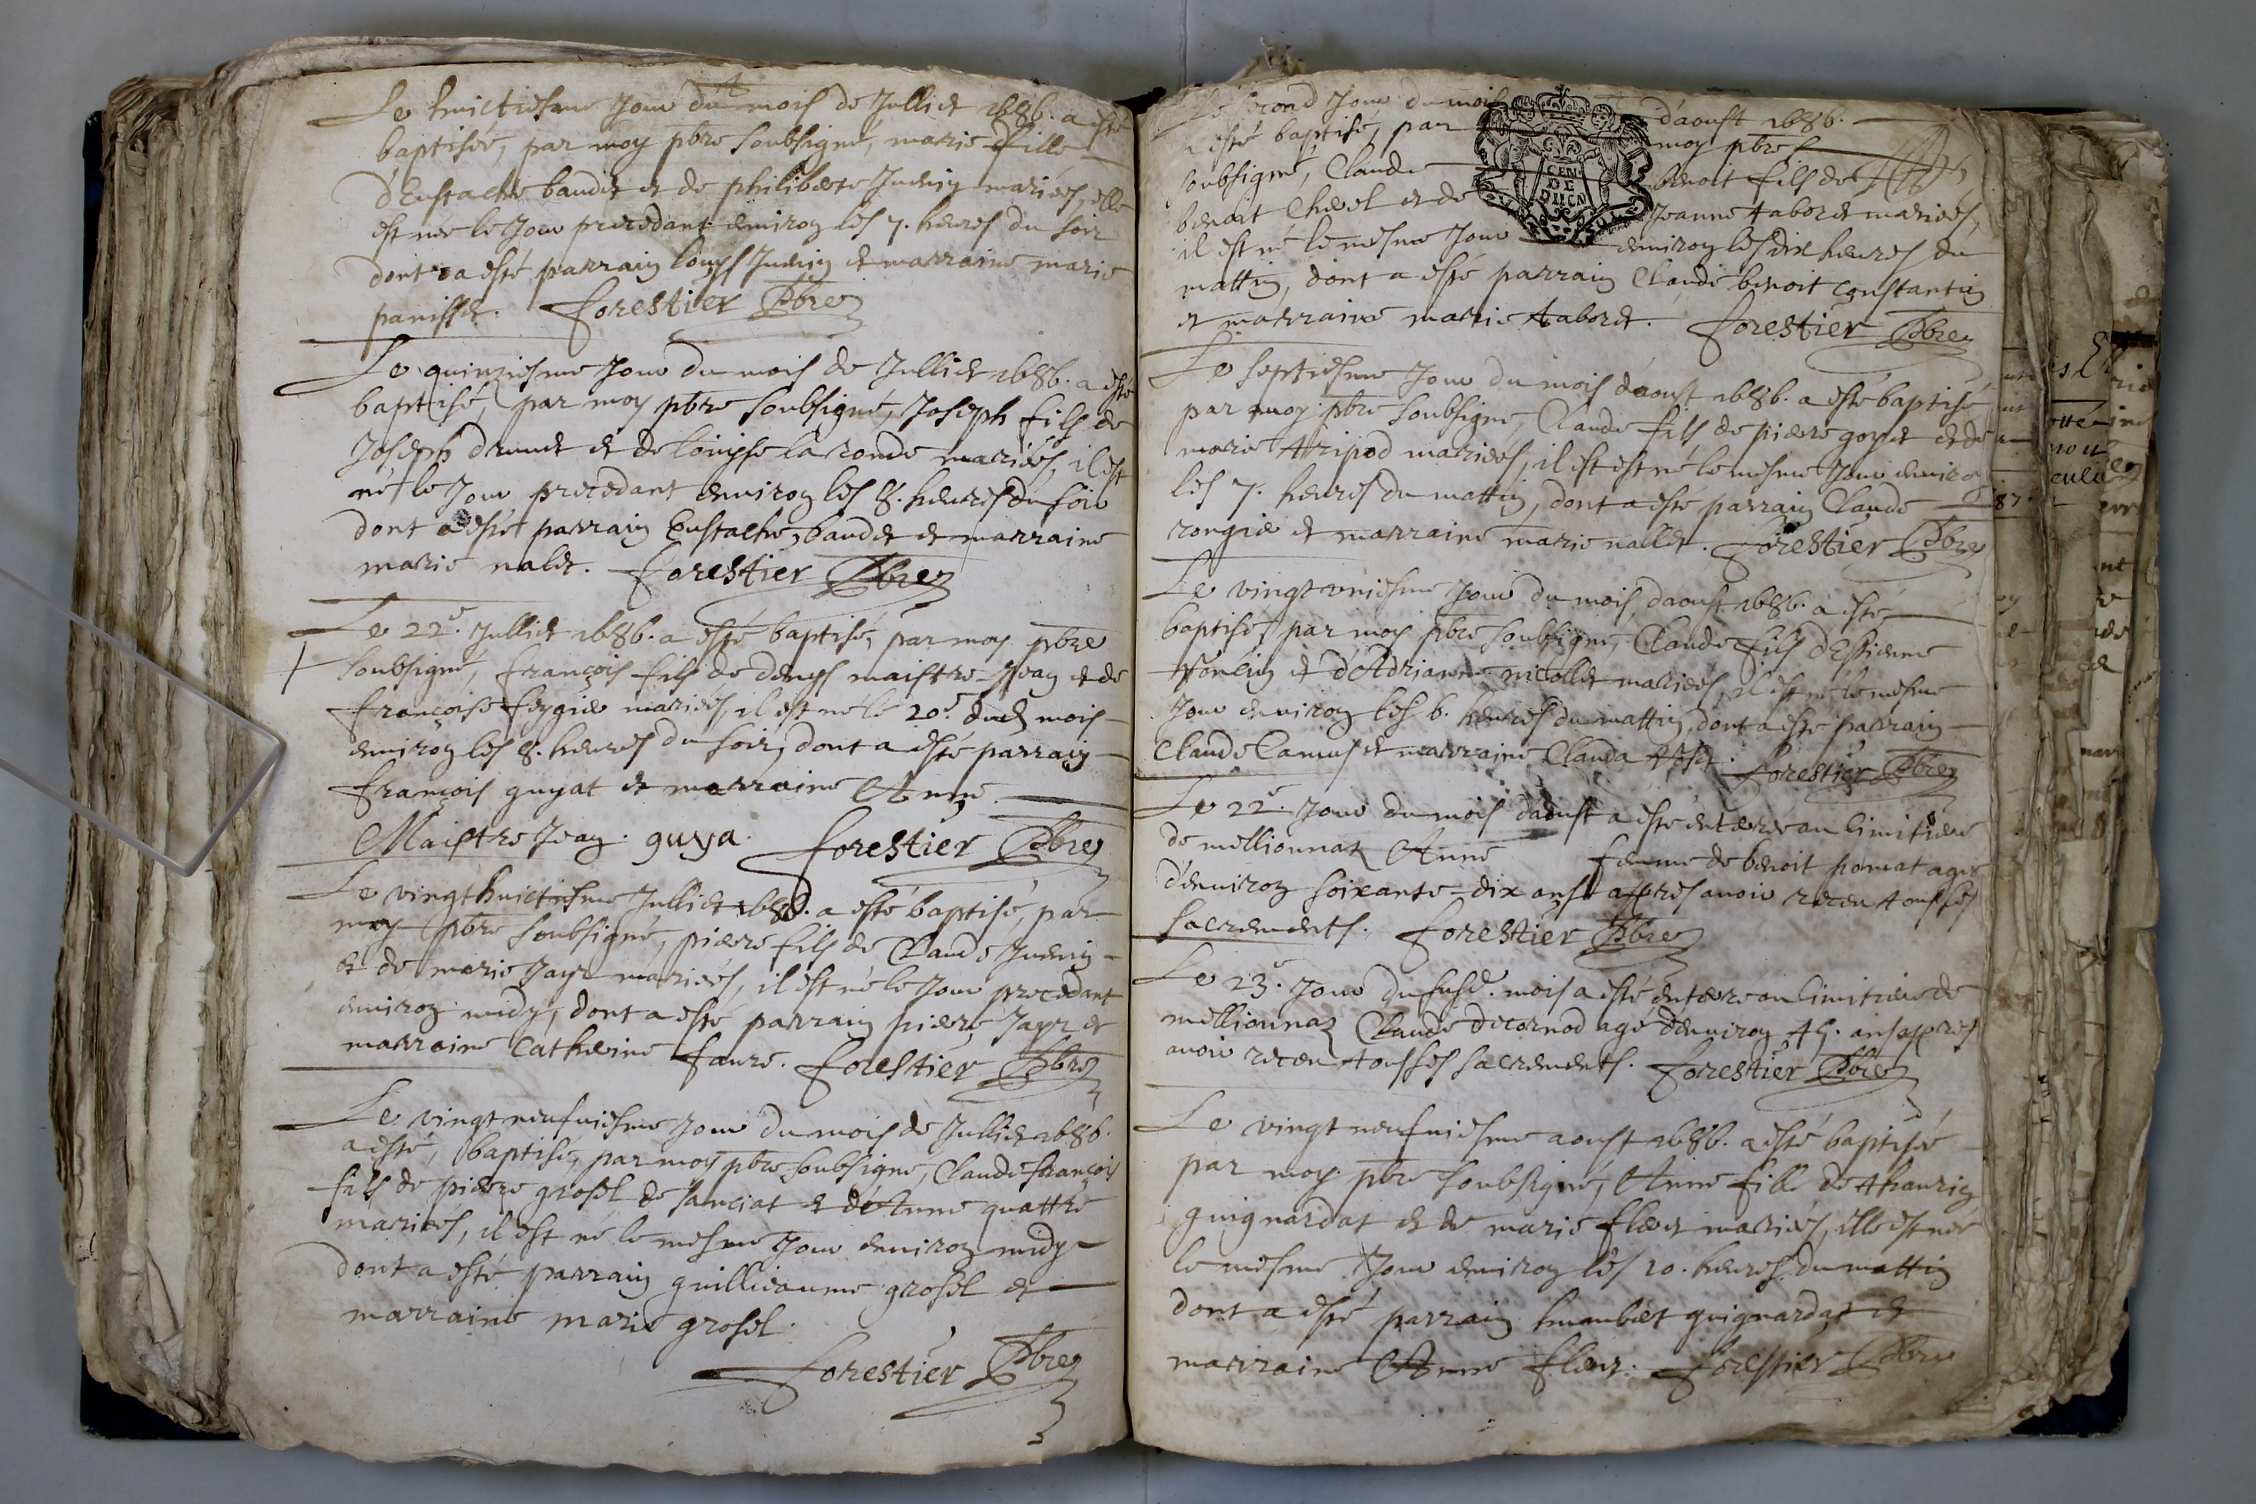 Le huictiesme Jour du mois de Julliet 1686. a esté
baptisée, par moy pbre soubsigné, marie fille
d'Eustache baudet et de philiberte Juenin mariés, elle
est née le Jour precedant environ les 7. heures du soir
dont a esté parrain Louys Juenin et marraine marie
panisset. forestier Pbre
Le quinziesme Jour du mois de Julliet 1686. a esté
baptisé, par moy pbre soubsigné, Joseph fils de
Joseph druuet et de Louyse la ronde mariés, il est
né le Jour precedant environ les 8. heures du soir
dont a esté parrain Eustache baudet et marraine
marie nalet. forestier Pbre
Le 22e. Julliet 1686. a esté baptisé, par moy pbre
soubsigné, françois fils de denys maistre Jean et de
françoise mariés, il est né le 20e. dud mois
environ les 8. heures du soir, dont a esté parrain
françois guyat et marraine Anne
Maistre Jean. guya. forestier Pbre
Le vingt huictiesme Julliet 1686. a esté baptisé, par
moy pbre soubsigné, pierre fils de Claude Juenin
et de marie Jayr mariés, il est né le Jour precedant
environ midy, dont a esté parrain pierre Jayr et
marraine Catherine faure. forestier Pbre
Le vingt neufuiesme Jour du mois de Julliet 1686.
a esté, baptisé, par moy pbre soubsigné, Claude françois
fils de pierre grosel de sanciat et de Anne quattre
mariés, il est né le mesme Jour environ midy
dont a esté parrain guillieaume grosel et
marraine marie grosel.
forestier Pbre
Le second Jour du mois d'aoust 1686.
a esté baptisé, par moy pbre
soubsigné, Claude benoit fils de
benoit Chevel et de Jeanne taboret mariés,
il est né le mesme Jour environ les dix heures du
mattin, dont a esté parrain Claude benoit constantin
et marraine marie taboret. forestier Pbre
GEN DE DIION
Le septiesme Jour du mois d'aoust 1686. a esté baptisé
par moy pbre soubsigné, Claude fils de pierre goyet et de
marie tripod mariés, il est est né le mesme Jour environ
les 7. heures du mattin, dont a esté parrain Claude
rongie et marraine marie nallet. forestier Pbre
Le vingt uniesme Jour du mois d'aoust 1686. a esté
baptisé, par moy pbre soubsigné, Claude fils d'Estienne
et d'Adrianne nicollet mariés, il est né le mesme
Jour environ les 6. heures du mattin, dont a esté parrain
Claude Camus et marraine Clauda forestier Pbre
Le 22e. Jour du mois d'aoust a esté enterre au Cimitiere
de mellionnaz Anne femme de benoit homat agee
d'environ soixante-dix ans apres avoir receu tous les
sacrements. forestier Pbre
Le 23e. Jour du susd. mois a esté enterre au Cimitiere de
mellionnaz Claude decornod agé d'environ 45. ans apres
avoir receu tous les sacrements. forestier Pbre
Le vingt neufuiesme aoust 1686. a esté baptisé
par moy pbre soubsigné, Anne fille de thaurin
guignardat et de marie fleret mariés, elle est née
le mesme Jour environ les 10. heures du mattin
dont a esté parrain humbert guignardat et
marraine Anne fleret. forestier Pbre